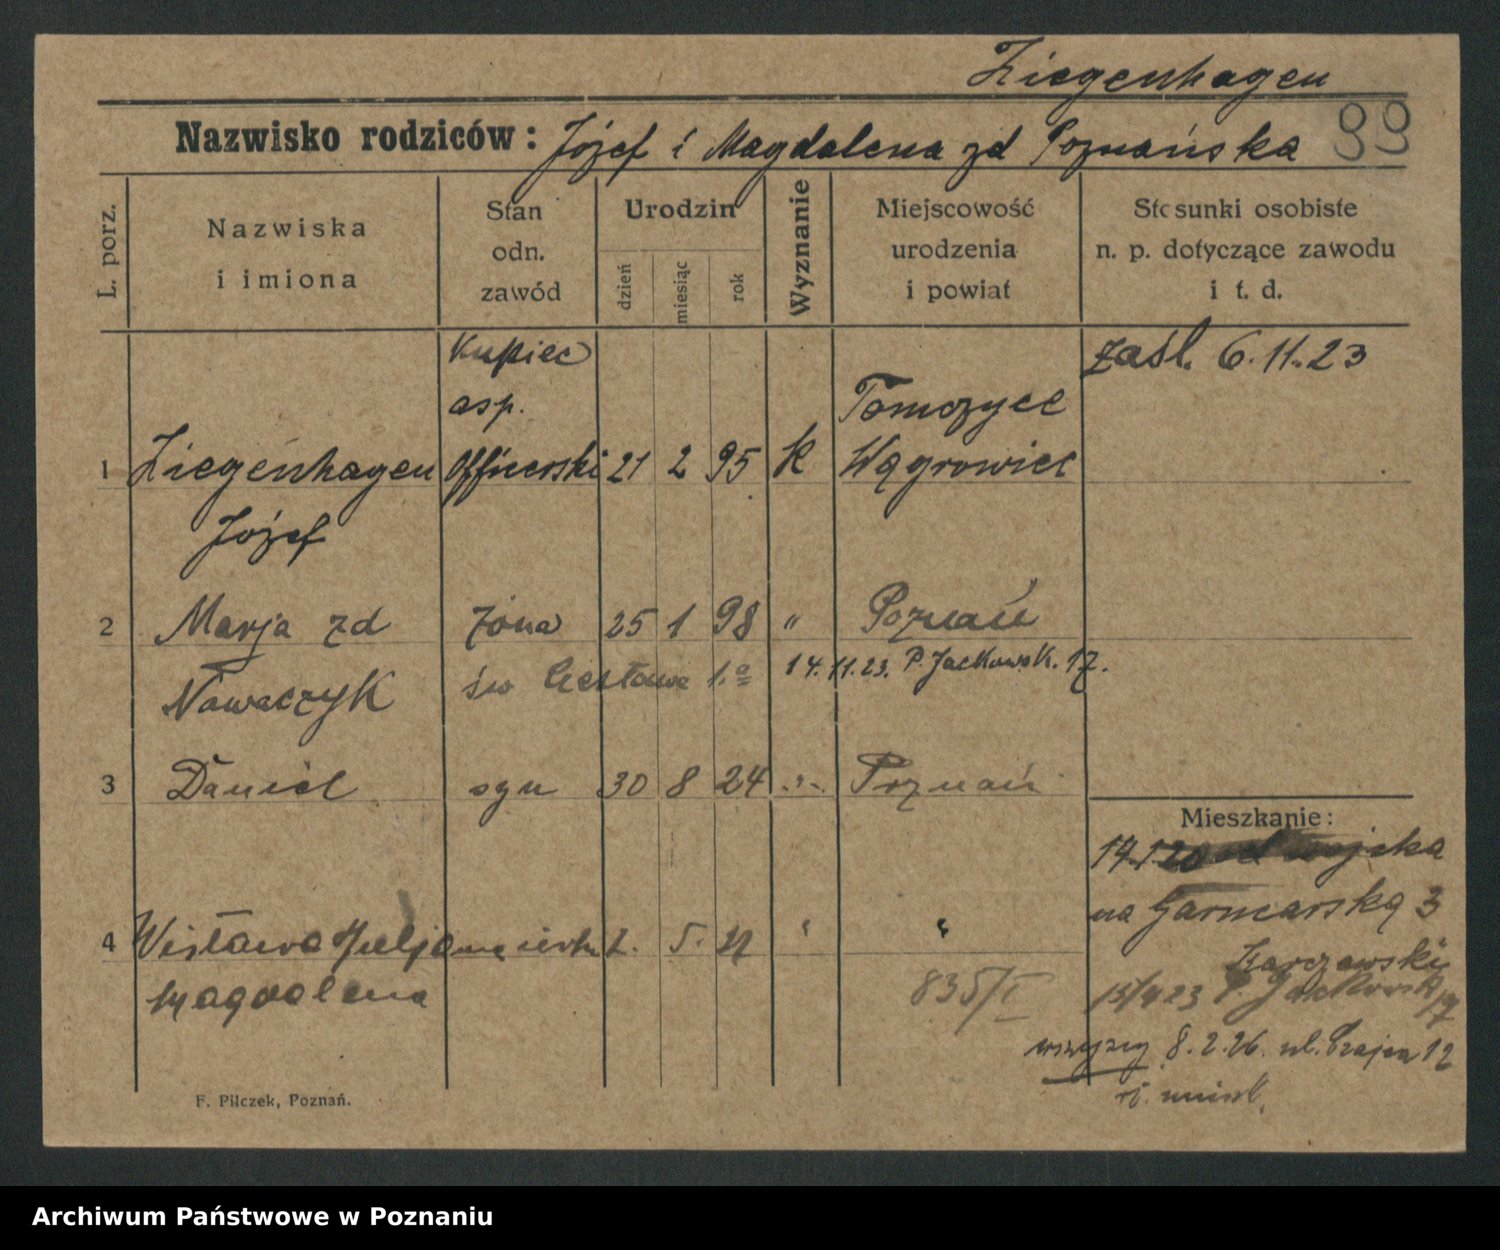 Ziegenhagen
Nazwisko rodziców: Józef i Magdalena zd Poznańska 99
L. porz.
Nazwiska
i imiona
Stan
odn.
zawód
Urodzin
dzień
miesiąc
rok
Wyznanie
Miejscowość
urodzenia
i powiat
Stosunki osobiste
n. p. dotyczące zawodu
i t. d.
Kupiec
asp.
zaśl. 6.11.23
1 Ziegenhagen Officerski 21 2 95 K Tomczyce
Wągrowiec
Józef
2 Marja zd żona 25 1 98 " Poznań
Nawaczyk św 14.11.23. P. Jackowsk. 17.
3 Daniel syn 30 8 24 Poznań
Mieszkanie:
14.1.20 od wojska
na Garncarską 3
4 Wisława Julja 2. 5. "
Magdalena
835/I
Karczewski
15/4 23 P. Jackowsk 17
wszyscy 8.2.26. ul. 12
F. Pilczek, Poznań.
Archiwum Państwowe w Poznaniu